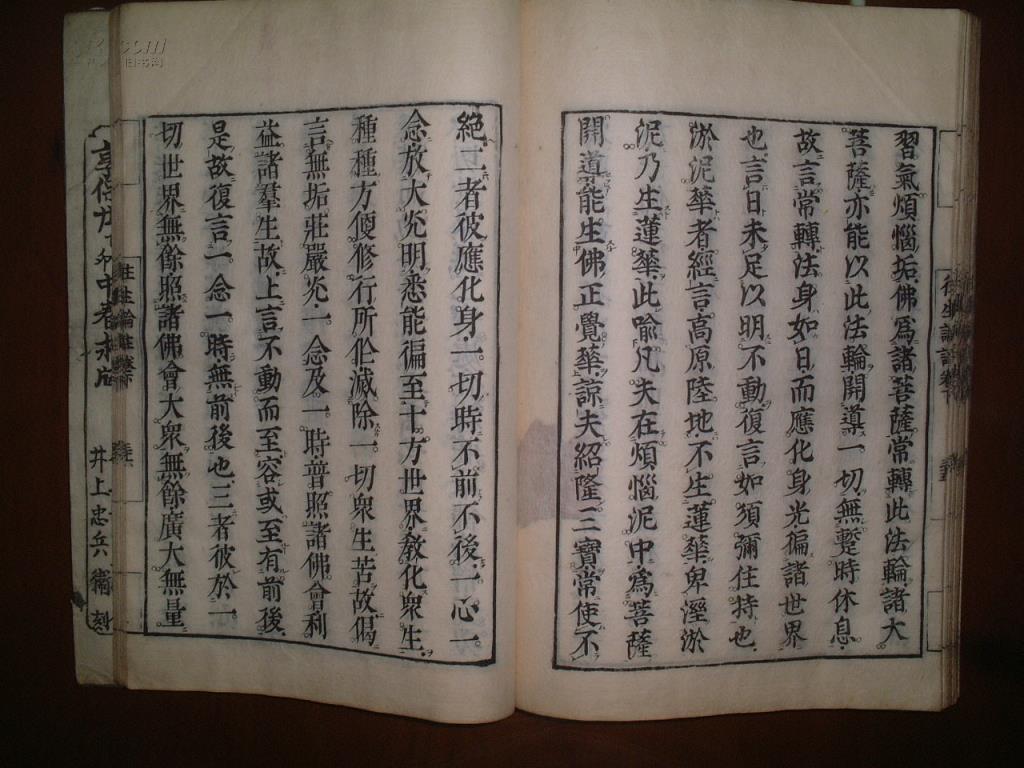 習氣煩惱垢佛爲諸菩薩常轉此法輪諸大
菩薩亦能以此法輪開導一切無蹔時休息
故言常轉法身如日而應化身光徧諸世界
也言日未足以明不動復言如須彌住持也
淤泥華者經言高原陸地不生蓮華卑溼淤
泥乃生蓮華此喻凡夫在煩惱泥中爲菩薩
開道能生佛正覺華諒夫紹隆三寶常使不
絕二者彼應化身一切時不前不後一心一
念放大光明悉能徧至十方世界敎化衆生
種種方便修行所作滅除一切衆生苦故偈
言無垢莊嚴光一念及一時普照諸佛會利
益諸羣生故上言不動而至容或至有前後
是故復言一念一時無前後也三者彼於一
切世界無餘照諸佛會大衆無餘廣大無量
往生論註卷下
井上忠兵衞刻